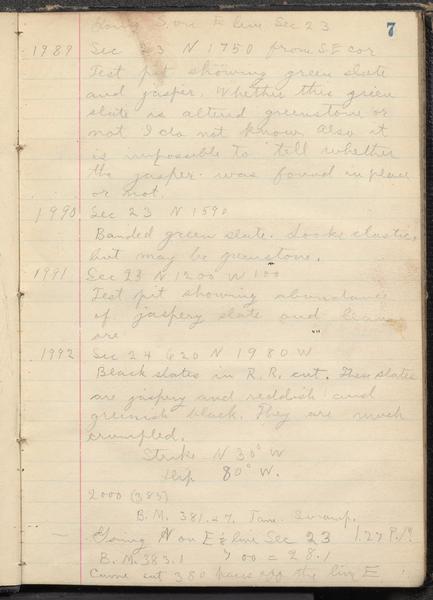 Going S. on E line Sec 23
7
1989 Sec 23 N 1750 from S.E cor
Test pit showing green slate
and jasper. Whether this green
slate is altered greenstone or
not I do not know. Also it
is impossible to tell whether
the jasper was found in place
or not.
1990 Sec 23 N 1590
Banded green slate. Looks clastic,
but may be greenstone.
1991 Sec 23 N 1200 W 100
Test pit showing abundance
of jaspery slate and
ore
1992 Sec 24 620 N 1980 W
Black slates in R.R. cut. These slates
are jaspery and reddish and
greenish black. They are much
crumpled.
Strike N 30° W
Dip 80° W.
2000 (383)
B.M. 381. Swamp.
Going N on E line Sec 23 1.27 P.M.
B.M. 383.1 700 = 28.1
Came out 380 paces off the line E